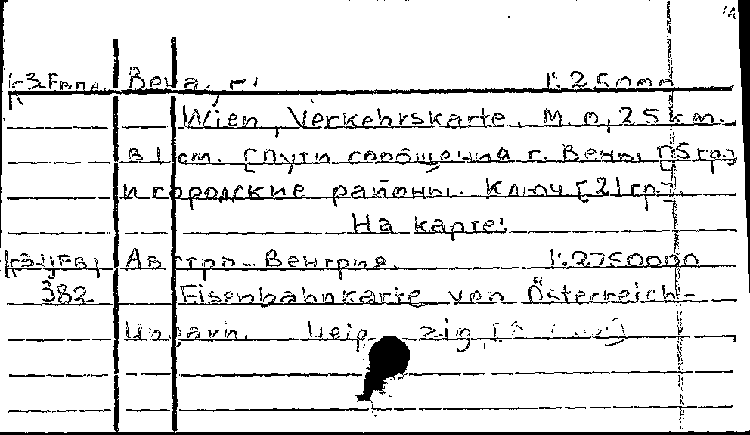 Вена, г. 1:25000
Wien, Verkehrskarte. М. 0,25 км.
в 1 см. [Пути сообщения г. Вены [5 гр.]
и городские районы. Ключ [21 гр.].
На карте:
Австро-Венгрия. 1:2750000
382 Eisenbahnkarte von Österreich-
Ungarn. Leipzig,